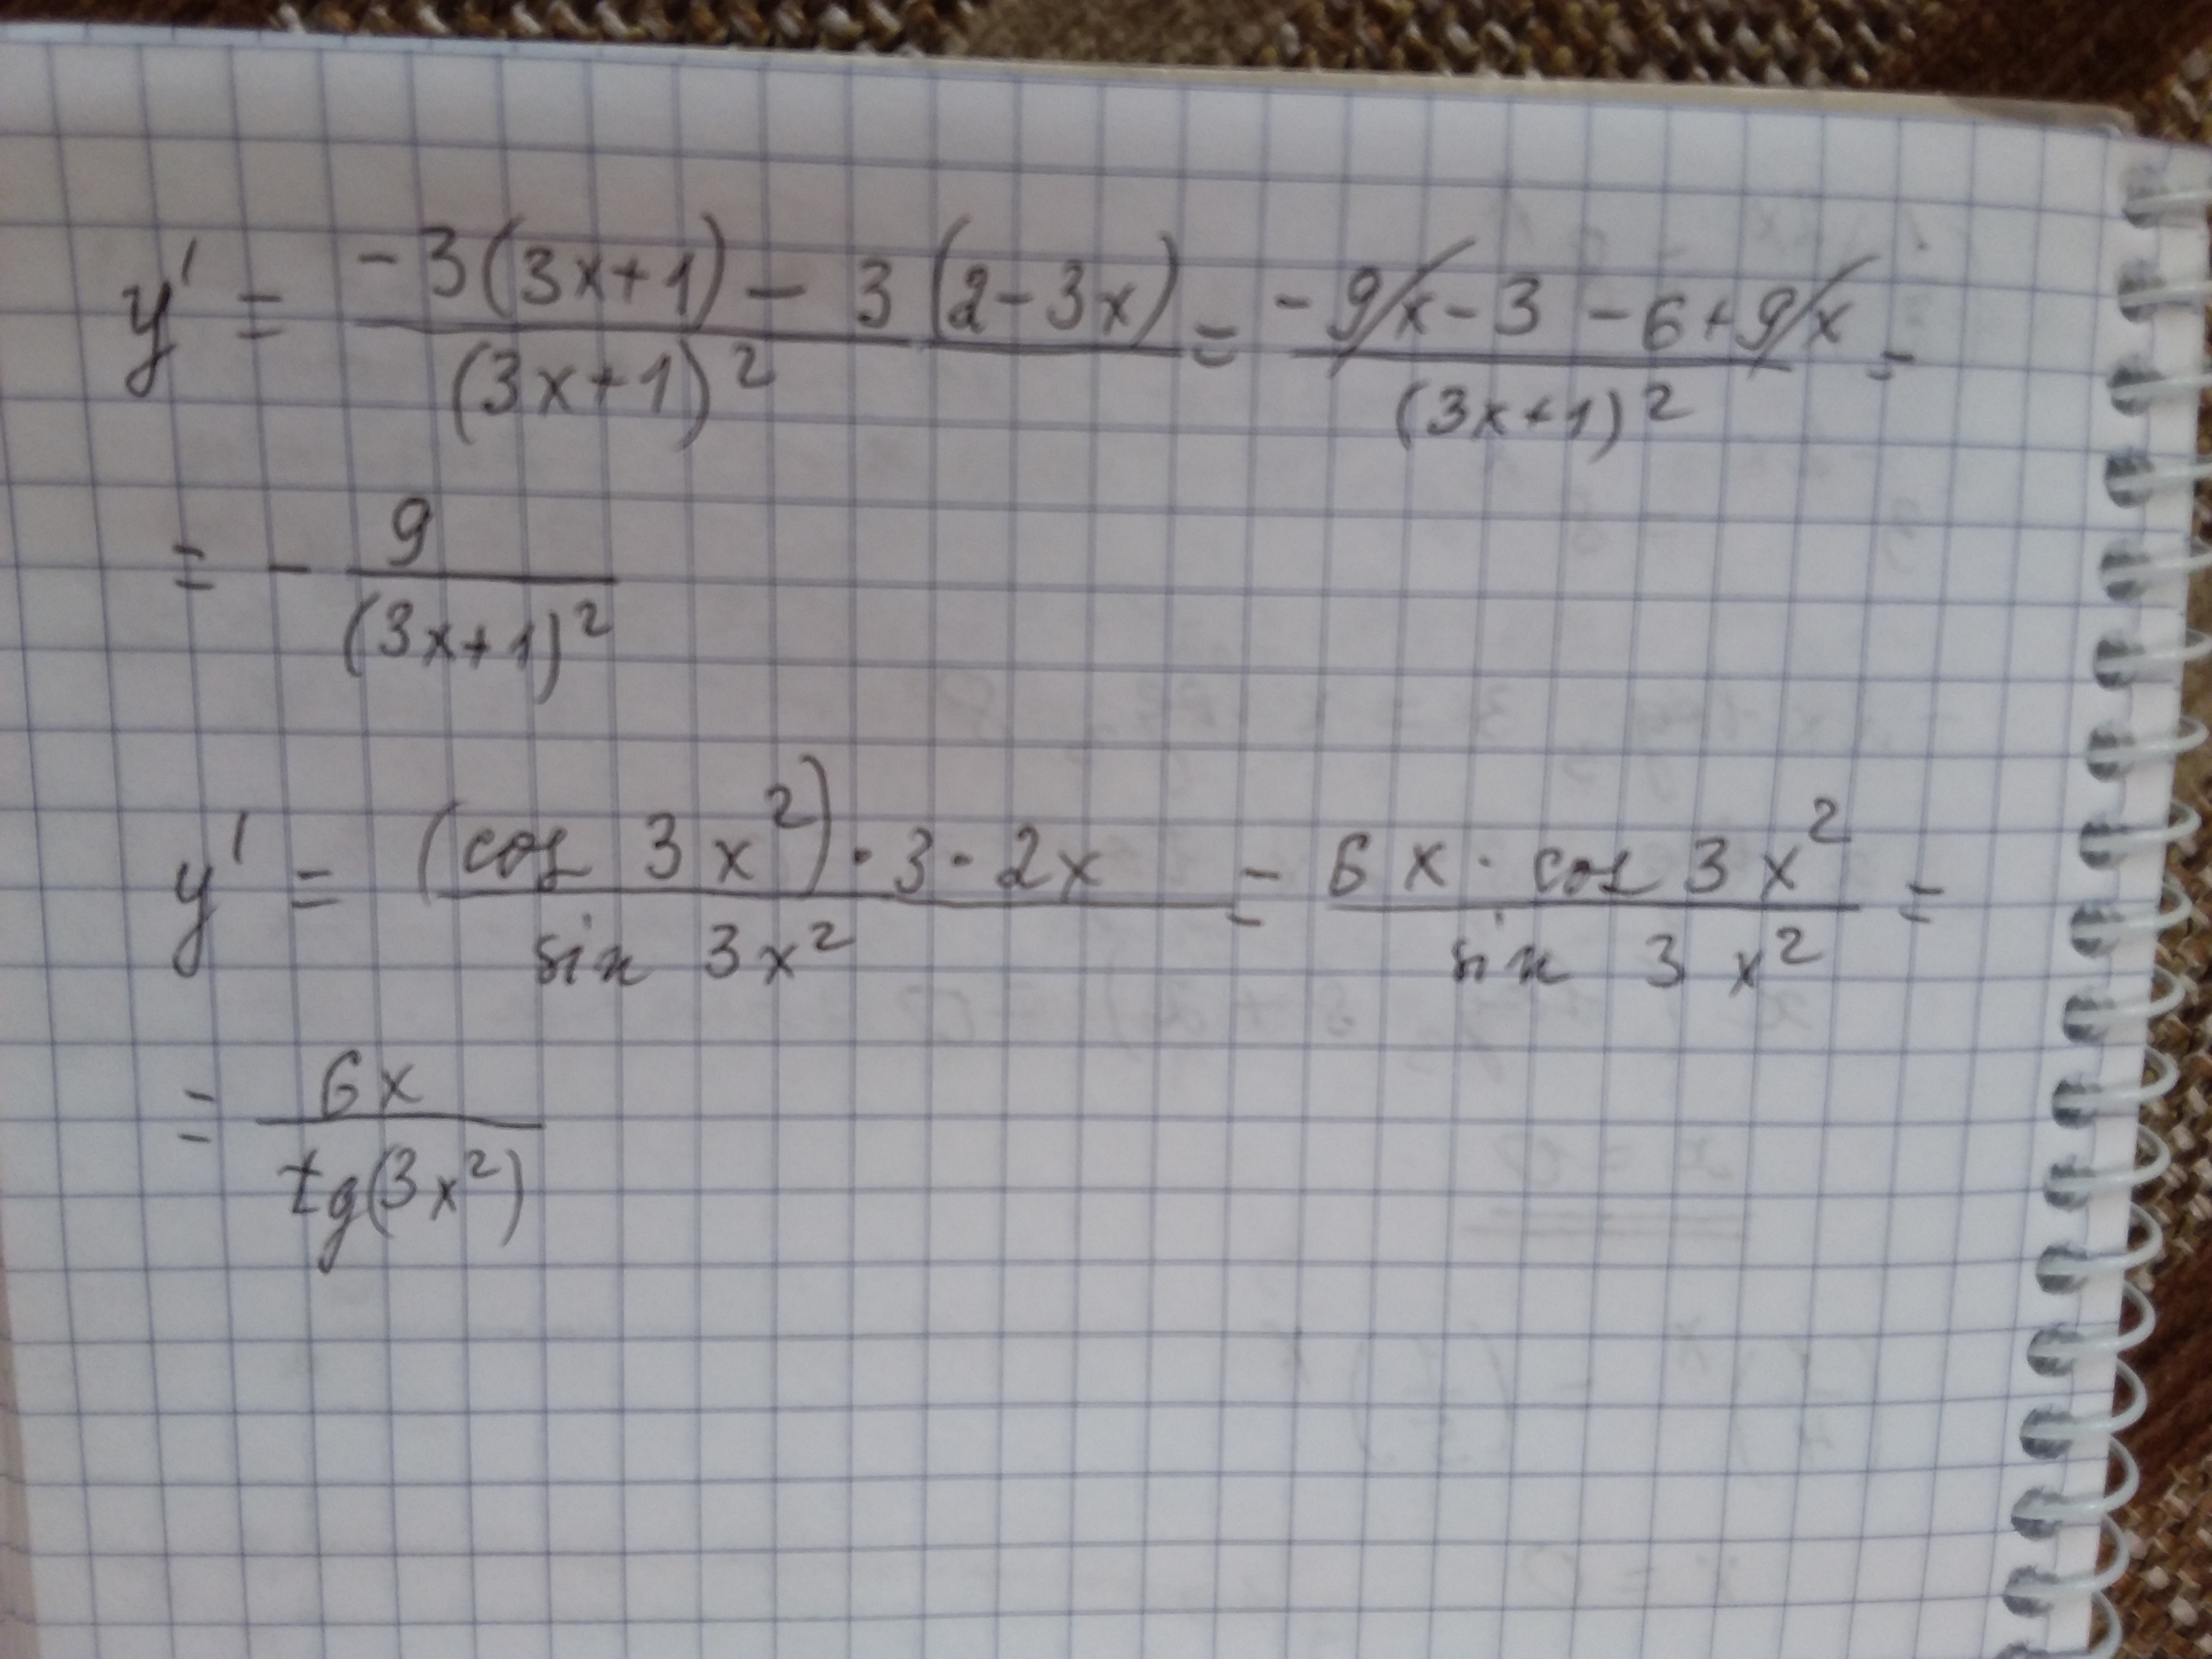 y' = (-3(3x+1) - 3(2-3x))/((3x+1)²) = (-9x-3-6+9x)/((3x+1)²) =
= - 9/((3x+1)²)
y' = ((cos 3x²)·3·2x)/(sin 3x²) = (6x·cos 3x²)/(sin 3x²) =
= 6x/(tg(3x²))